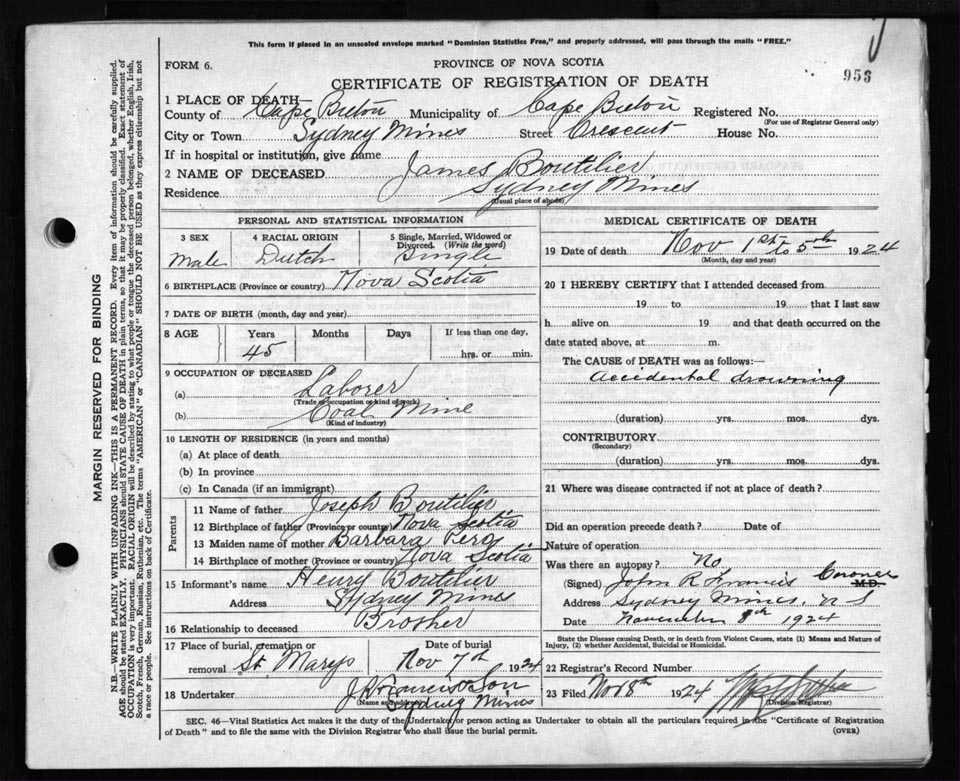 This form if placed in an unsealed envelope marked "Dominion Statistics Free," and properly addressed, will pass through the mails "FREE."
FORM 6.
PROVINCE OF NOVA SCOTIA
953
CERTIFICATE OF REGISTRATION OF DEATH
1 PLACE OF DEATH—
County of Cape Breton Municipality of Cape Breton Registered No.
(For use of Registrar General only)
City or Town Sydney Mines Street Crescent House No.
If in hospital or institution, give name
2 NAME OF DECEASED James Boutilier
Residence Sydney Mines
(Usual place of abode)
PERSONAL AND STATISTICAL INFORMATION
3 SEX 4 RACIAL ORIGIN 5 Single, Married, Widowed or Divorced. (Write the word)
Male Dutch Single
6 BIRTHPLACE (Province or country) Nova Scotia
7 DATE OF BIRTH (month, day and year)
8 AGE Years Months Days If less than one day,
45 hrs. or min.
9 OCCUPATION OF DECEASED
(a) Laborer
(Trade, occupation or kind of work)
(b) Coal Mine
(Kind of industry)
10 LENGTH OF RESIDENCE (in years and months)
(a) At place of death
(b) In province
(c) In Canada (if an immigrant)
Parents
11 Name of father Joseph Boutilier
12 Birthplace of father (Province or country) Nova Scotia
13 Maiden name of mother Barbara
14 Birthplace of mother (Province or country) Nova Scotia
15 Informant's name Henry Boutilier
Address Sydney Mines
16 Relationship to deceased Brother
17 Place of burial, cremation or removal St Marys Date of burial Nov 7th 1924
18 Undertaker J R Francis & Son
(Name and address) Sydney Mines
MEDICAL CERTIFICATE OF DEATH
19 Date of death Nov 1st to 5th 1924
(Month, day and year)
20 I HEREBY CERTIFY that I attended deceased from
19 to 19 that I last saw
h alive on 19 and that death occurred on the
date stated above, at m.
The CAUSE of DEATH was as follows:—
Accidental drowning
(duration) yrs. mos. dys.
CONTRIBUTORY
(Secondary)
(duration) yrs. mos. dys.
21 Where was disease contracted if not at place of death?
Did an operation precede death? Date of
Nature of operation
Was there an autopsy? No
(Signed) John R Francis Coroner M.D.
Address Sydney Mines, N S
Date November 8th 1924
State the Disease causing Death, or in death from Violent Causes, state (1) Means and Nature of Injury, (2) whether Accidental, Suicidal or Homicidal.
22 Registrar's Record Number
23 Filed Nov 8th 1924
(Division Registrar)
SEC. 46—Vital Statistics Act makes it the duty of the Undertaker or person acting as Undertaker to obtain all the particulars required in the "Certificate of Registration
of Death" and to file the same with the Division Registrar who shall issue the burial permit. (OVER)
MARGIN RESERVED FOR BINDING
N.B.—WRITE PLAINLY WITH UNFADING INK—THIS IS A PERMANENT RECORD. Every item of information should be carefully supplied.
AGE should be stated EXACTLY. PHYSICIANS should STATE CAUSE OF DEATH in plain terms, so that it may be properly classified. Exact statement of
OCCUPATION is very important. RACIAL ORIGIN will be described by stating to what people or tongue the deceased person belonged, whether English, Irish,
Scotch, French, German, Russian, Ruthenian, etc. The terms "AMERICAN" or "CANADIAN" SHOULD NOT BE USED as they express citizenship but not
a race or people. See instructions on back of Certificate.